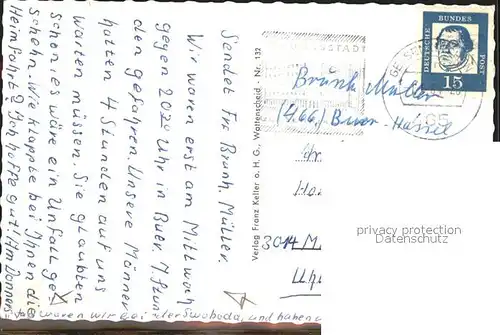 Sendet Fr. Brunh. Müller.
Wir waren erst am Mittwoch
gegen 20²⁰ Uhr in Buer.
den gefahren. Unsere Männer
hatten 4 Stunden auf uns
warten müssen. Sie glaubten
schon es wäre ein Unfall ge-
schehn. Wie klappte bei Ihnen die
Heimfahrt? Ich hoffe gut! Am Donners-
tag waren wir bei der Swoboda, und haben
Verlag Franz Keller o. H. G., Wattenscheid - Nr. 132
DEUTSCHE BUNDESPOST
15
Brunh. Müller
(466) Buer-Hassel
465
3014 M
privates Wasserzeichen
Datenschutz